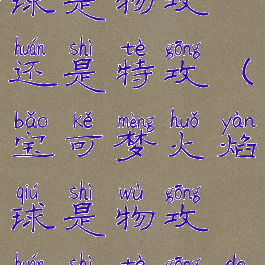 球是物攻
huán shì tè gōng
还是特攻（
bǎo kě mèng huǒ yàn
宝可梦火焰
qiú shì wù gōng
球是物攻
huán shì tè gōng de